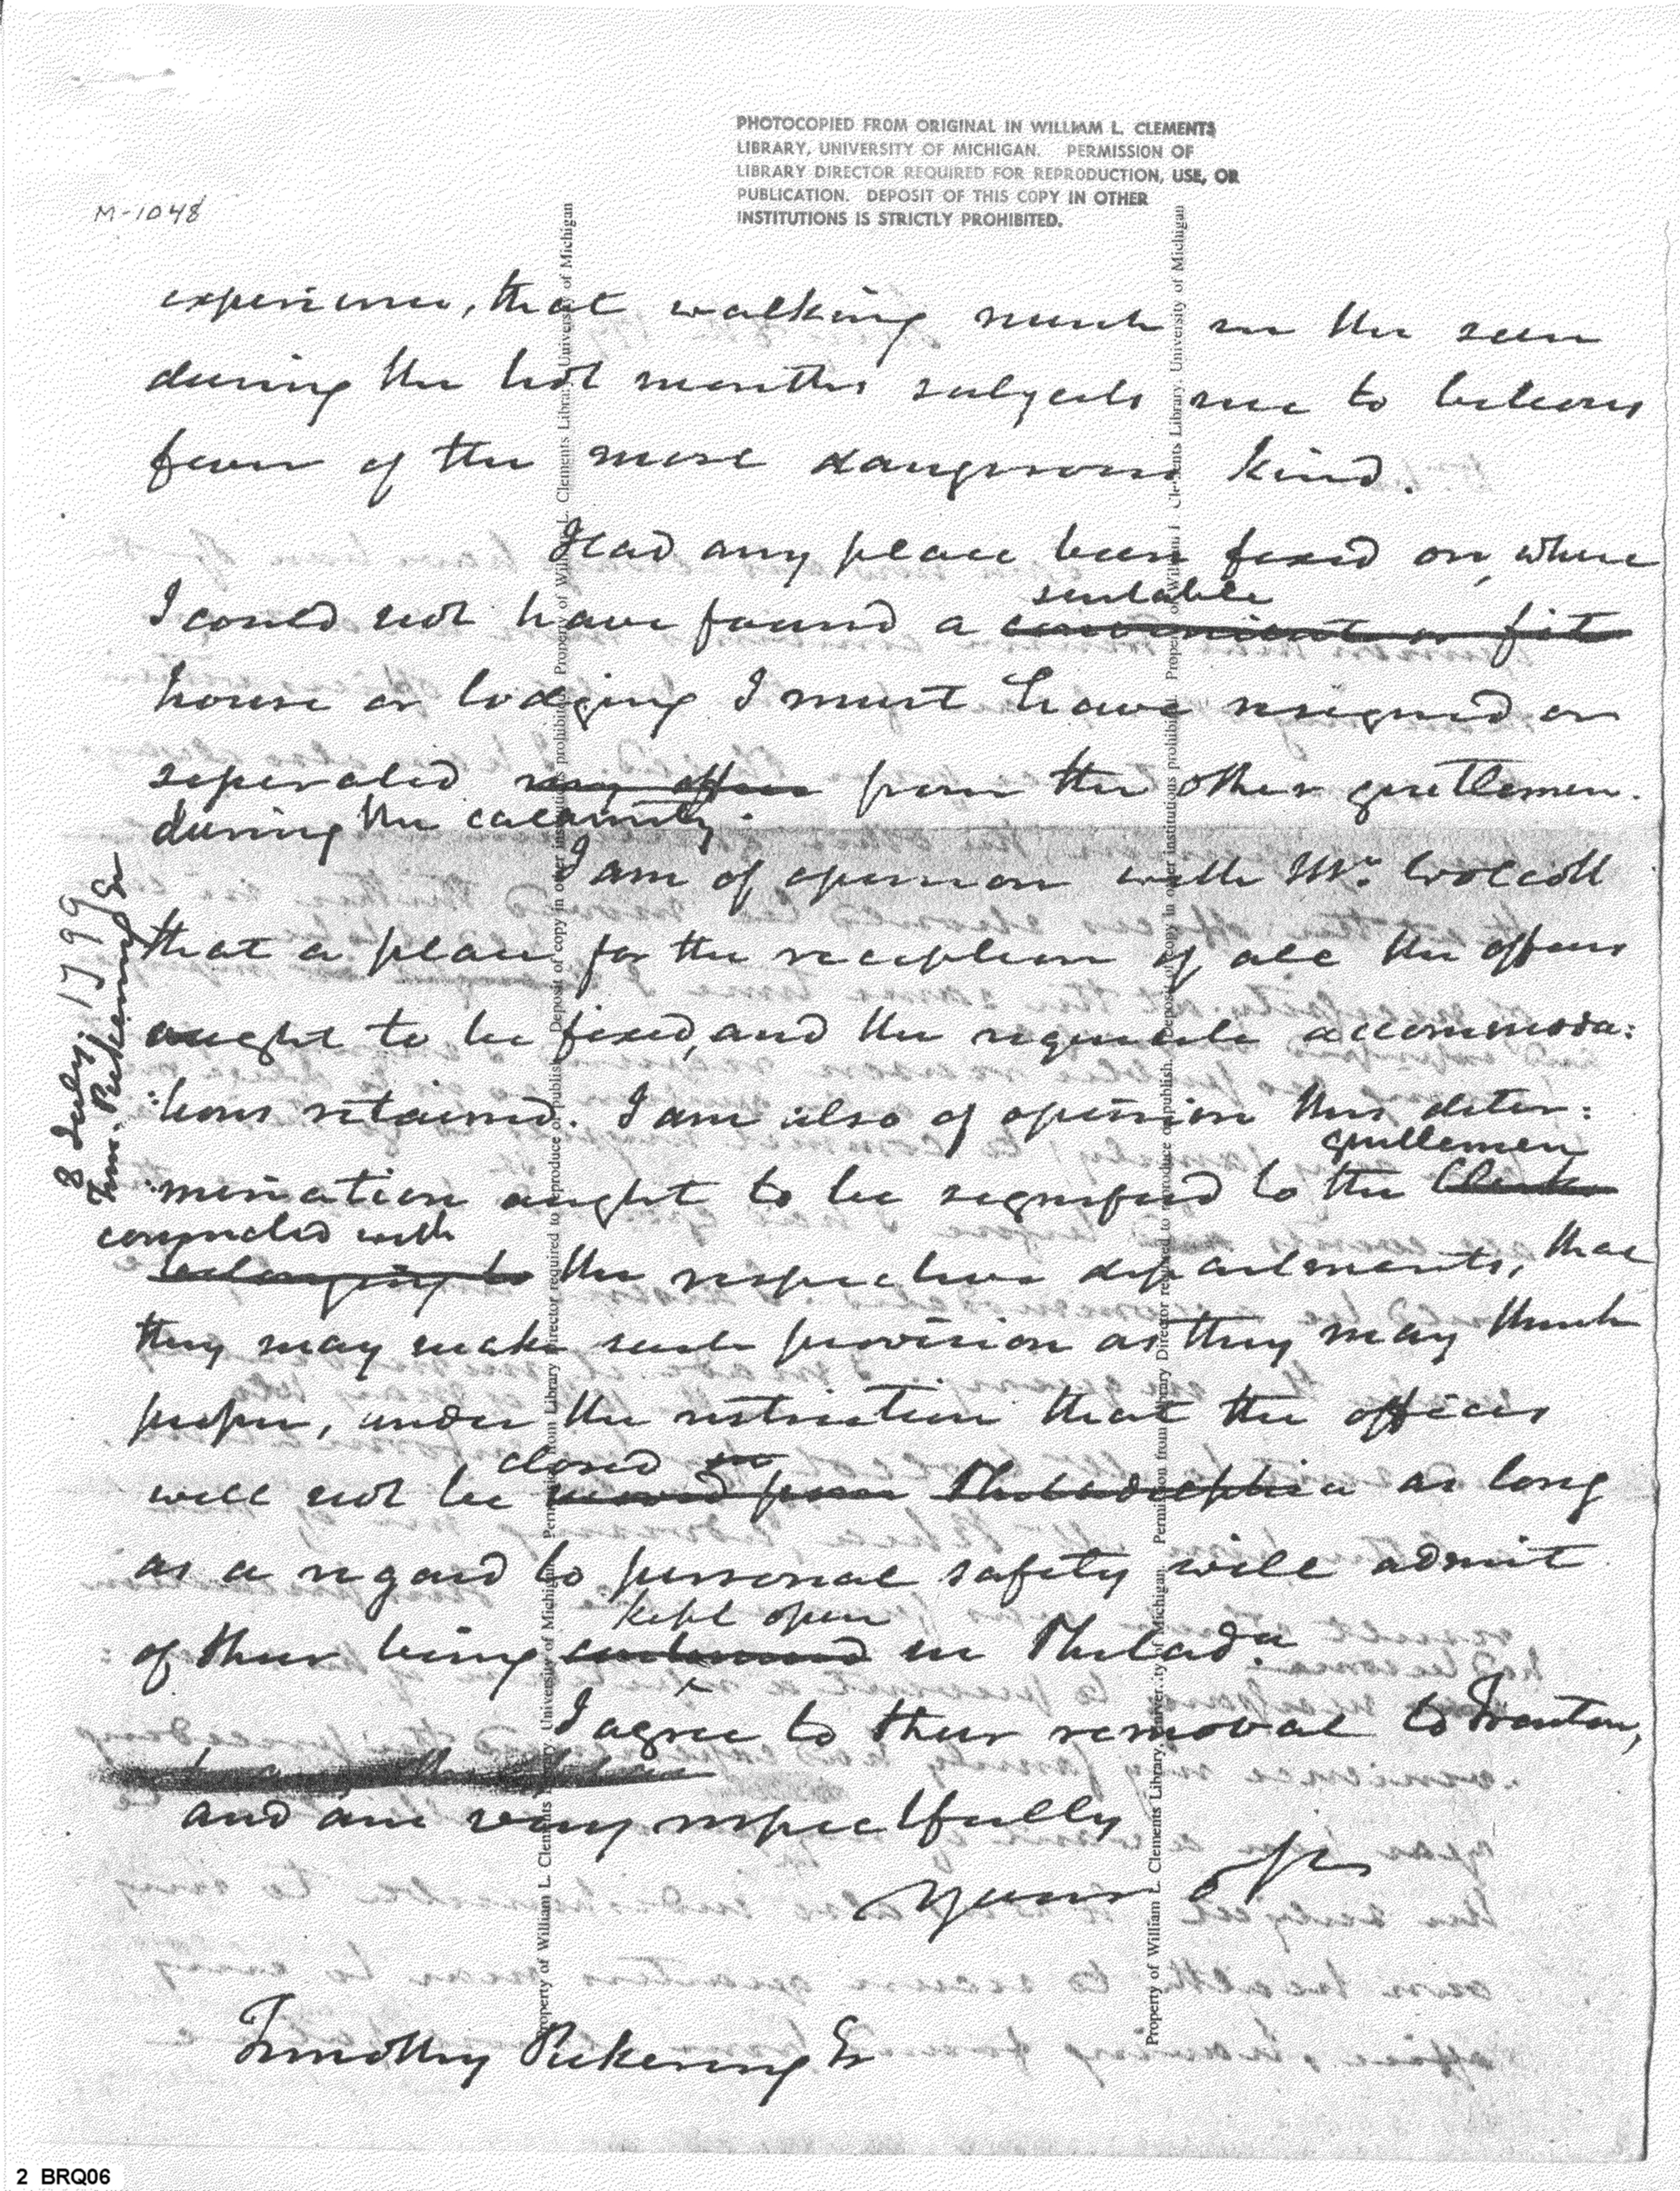 PHOTOCOPIED FROM ORIGINAL IN WILLIAM L. CLEMENTS
LIBRARY, UNIVERSITY OF MICHIGAN. PERMISSION OF
LIBRARY DIRECTOR REQUIRED FOR REPRODUCTION, USE, OR
PUBLICATION. DEPOSIT OF THIS COPY IN OTHER
INSTITUTIONS IS STRICTLY PROHIBITED.
M-1048
experience, that walking much in the sun
during the hot months subjects me to bileous
fever of the most dangerous kind.
Had any place been fixed on, where
suitable
I could not have found a convenient or fit
house or lodging I must have resigned or
seperated my office from the other gentlemen.
during the calamity.
I am of opinion with Mr. Wolcott
that a place for the reception of all the offices
ought to be fixed, and the requisite accommoda:
:tions retained. I am also of opinion this deter:
gentlemen
:mination ought to be signified to the Clerks
connected with
belonging to the respective departments, that
they may make such provision as they may think
proper, under the restriction that the offices
closed in
will not be moved from Philadelphia as long
as a regard to personal safety will admit
kept open
of their being continued in Philada.
I agree to their removal to Trenton,
and am very respectfully
yours
Timothy Pickering Es
8 July, 1799
Tim. Pickering Es
Property of William L. Clements Library, University of Michigan. Permission from Library Director required to reproduce or publish. Deposit of copy in other institutions prohibited. Property of William L. Clements Library, University of Michigan
Property of William L. Clements Library, University of Michigan. Permission from Library Director required to reproduce or publish. Deposit of copy in other institutions prohibited. Property of William L. Clements Library, University of Michigan
2 BRQ06